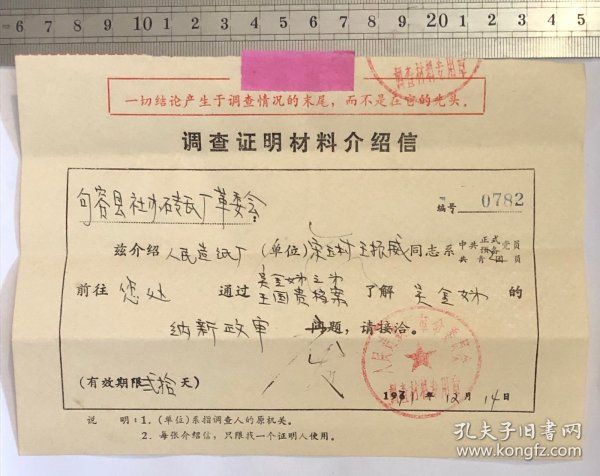 6 7 8 9 10 1 2 3 4 5 6 7 8 9 20 1 2 3 4 5
调查材料专用章
一切结论产生于调查情况的末尾，而不是在它的先头。
调查证明材料介绍信
句容县社办砖瓦厂革委会：
编号 0782
兹介绍 人民造纸厂 (单位) 王振威 同志系 中共正式预备党员 共青团员
前往 您处 通过 吴金妹之弟 王国贵档案 了解 吴金妹 的
纳新政审 问题，请接洽。
(有效期限 贰拾 天)
1971年12月14日
人民造纸厂革命委员会
调查材料专用章
说 明：1．(单位)系指调查人的原机关。
2．每张介绍信，只限找一个证明人使用。
孔夫子旧书网
www.kongfz.com